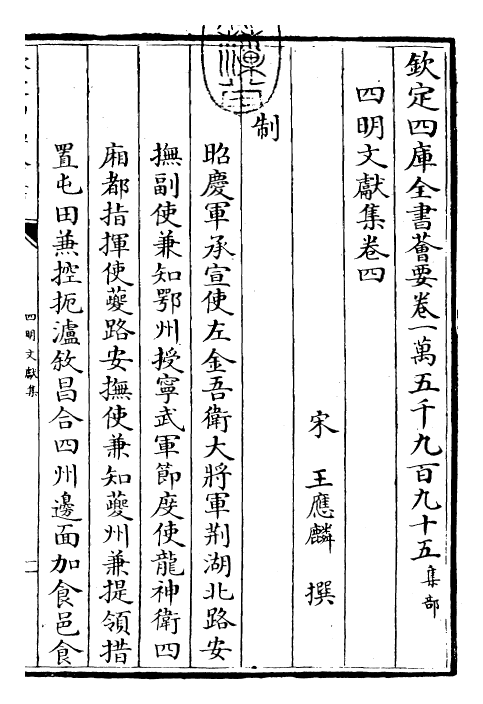 欽定四庫全書薈要卷一萬五千九百九十五集部
四明文獻集卷四
宋 王應麟 撰
制
昭慶軍承宣使左金吾衛大將軍荆湖北路安
撫副使兼知鄂州授寧武軍節度使龍神衛四
廂都指揮使夔路安撫使兼知夔州兼提領措
置屯田兼控扼瀘敘昌合四州邊面加食邑食
四明文獻集